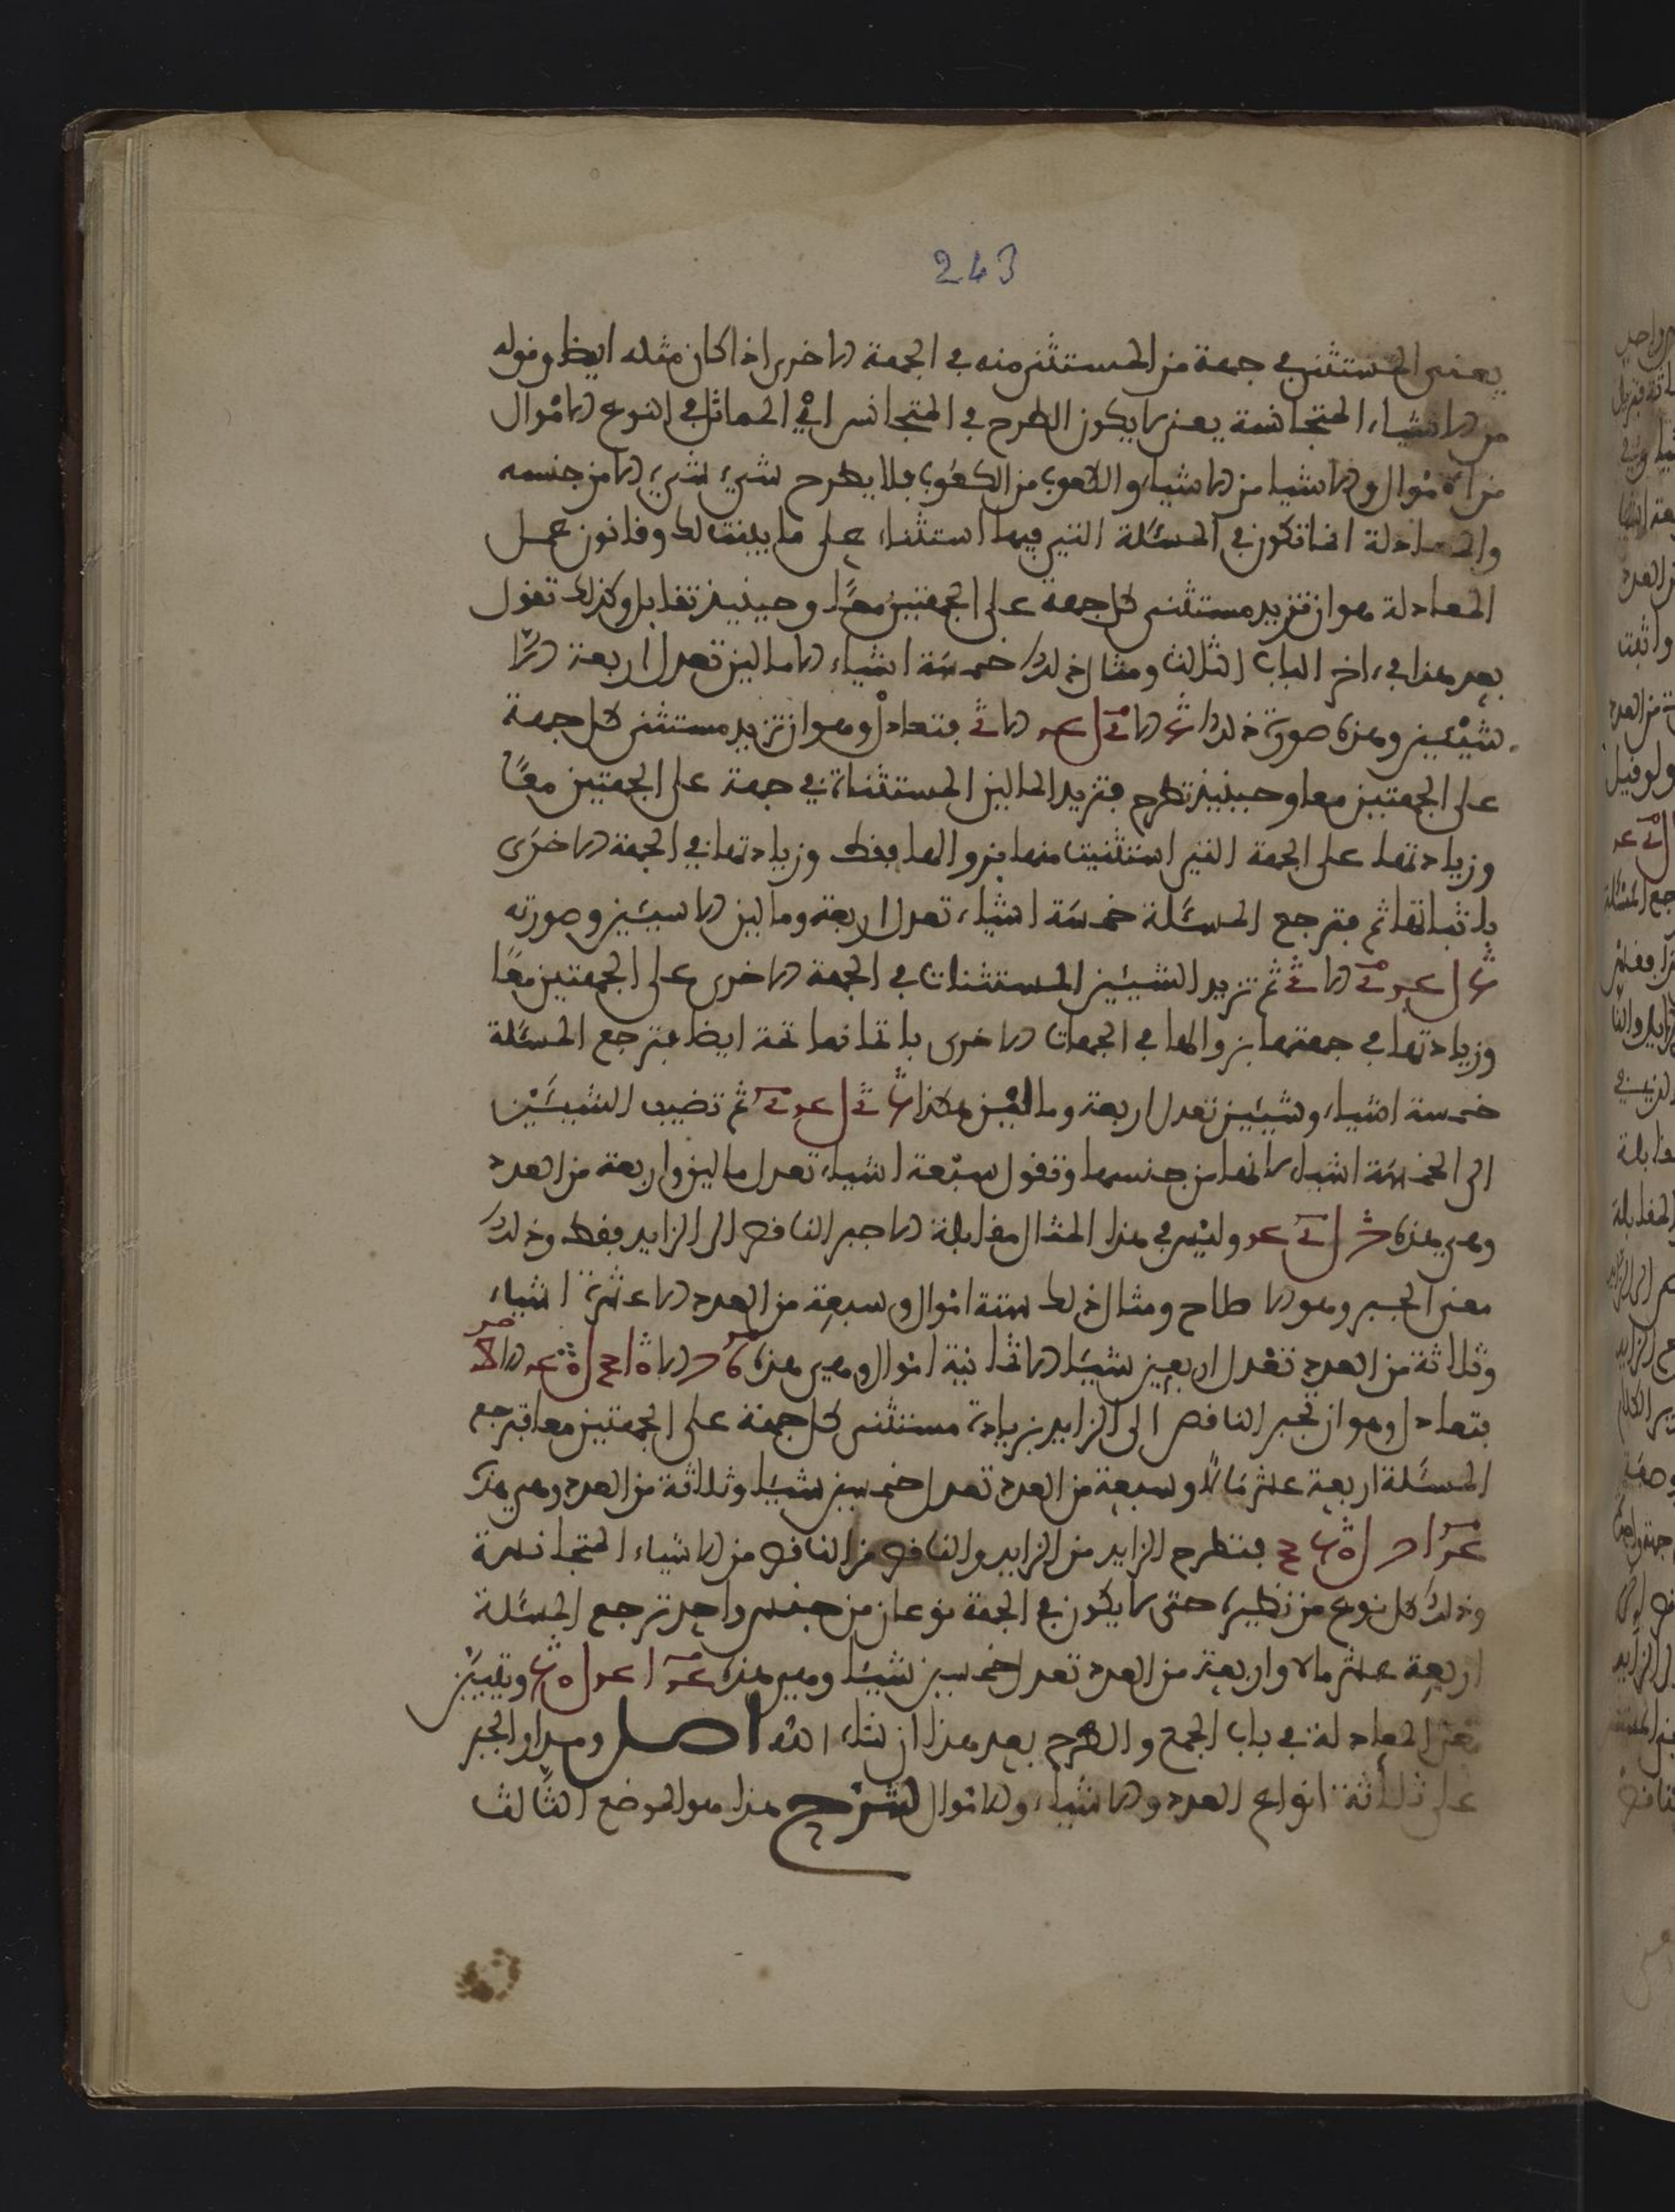 243
يعنى المستثنى في جهة من المستثنى منه في الجهة الاخرى اذا كان مثله ايضا وقوله
من الاشياء المتجانسة يعنى لا يكون الطرح في المتجانس اي في المماثل في النوع الاموال
من الاموال والاشيا من الاشياء والكعوب من الكعوب فلا يطرح شيء شيء الا من جنسه
والمعادلة انما تكون في المسئلة التي فيها استثناء على ما بينت لك وقانون عمل
المعادلة هو ان تزيد مستثنى كل جهة على الجهتين معًا وحينيذ تقابل وكذلك تقول
بعد هذا في ءاخر الباب الثالث ومثال ذلك خمسة اشياء الا مالين تعدل اربعة الا
شيئين وهذه صورة ذلك فتعادل وهو ان تزيد مستثنى كل جهة
على الجهتين معا وحينيذ تطرح فتزيد المالين المستثناة في جهة على الجهتين معًا
وزيادتها على الجهة التي استثنيت منها بزوالها فقط وزيادتها في الجهة الاخرى
باثباتها ثم فترجع المسئلة خمسة اشياء تعدل اربعة ومالين الا شيئين وصورته
ثم تزيد الشيئين المستثنات في الجهة الاخرى على الجهتين معًا
وزيادتها في جهتها بزوالها في الجهات الاخرى باثباتها ثمة ايضا فترجع المسئلة
خمسة اشياء وشيئين تعدل اربعة ومالين هكذا ثم تضيف الشيئين
الى الخمسة اشياء لانها من جنسها وتقول سبعة اشياء تعدل مالين واربعة من العدد
وهي هذه وليس في هذا المثال مقابلة الا جبر الناقص الى الزايد فقط وذلك
معنى الجبر وهو الاصلاح ومثال ذلك ستة اموال وسبعة من العدد الا عشرة اشياء
وثلاثة من العدد تعدل اربعين شيئا الا ثمانية اموال وهي هذه
فتعادل وهو ان تجبر الناقص الى الزايد بزيادة مستثنى كل جهة على الجهتين معا فترجع
المسئلة اربعة عشر مالًا وسبعة من العدد تعدل خمسين شيئا وثلاثة من العدد وهي هذه
فتطرح الزايد من الزايد والناقص من الناقص من الاشياء المتجانسة
وذلك كل نوع من نظيره حتى لا يكون في الجهة نوعان من جنس واحد ترجع المسئلة
اربعة عشر مالا واربعة من العدد تعدل خمسين شيئا وهي هذه وتتبين
المعادلة في باب الجمع والطرح بعد هذا ان شاء الله اصل ومدار الجبر
على ثلاثة انواع العدد والاشياء والاموال شرح هذا هو الموضع الثالث